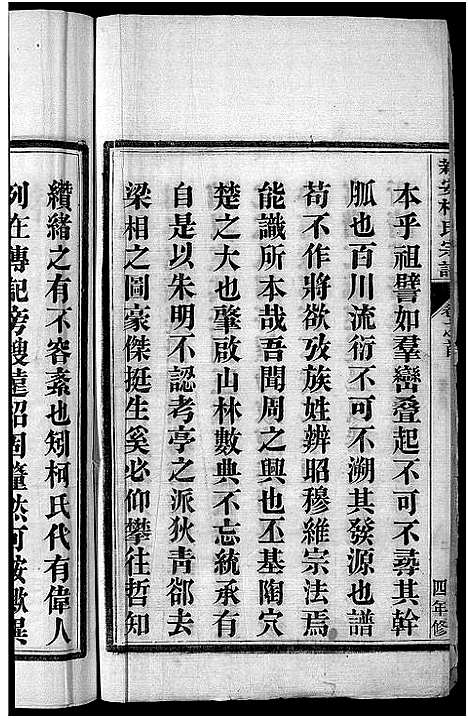 新安柯氏宗譜
卷之首
四年修
本乎祖譬如羣巒疊起不可不尋其幹
脈也百川流衍不可不溯其發源也譜
苟不作將欲攷族姓辨昭穆維宗法焉
能識所本哉吾聞周之興也丕基陶穴
楚之大也肇啟山林數典不忘統承有
自是以朱明不認考亭之派狄青郤去
梁相之圖豪傑挺生奚必仰攀往哲知
纘緒之有不容紊也矧柯氏代有偉人
列在傳記旁搜遠紹固鑿然可按歟異